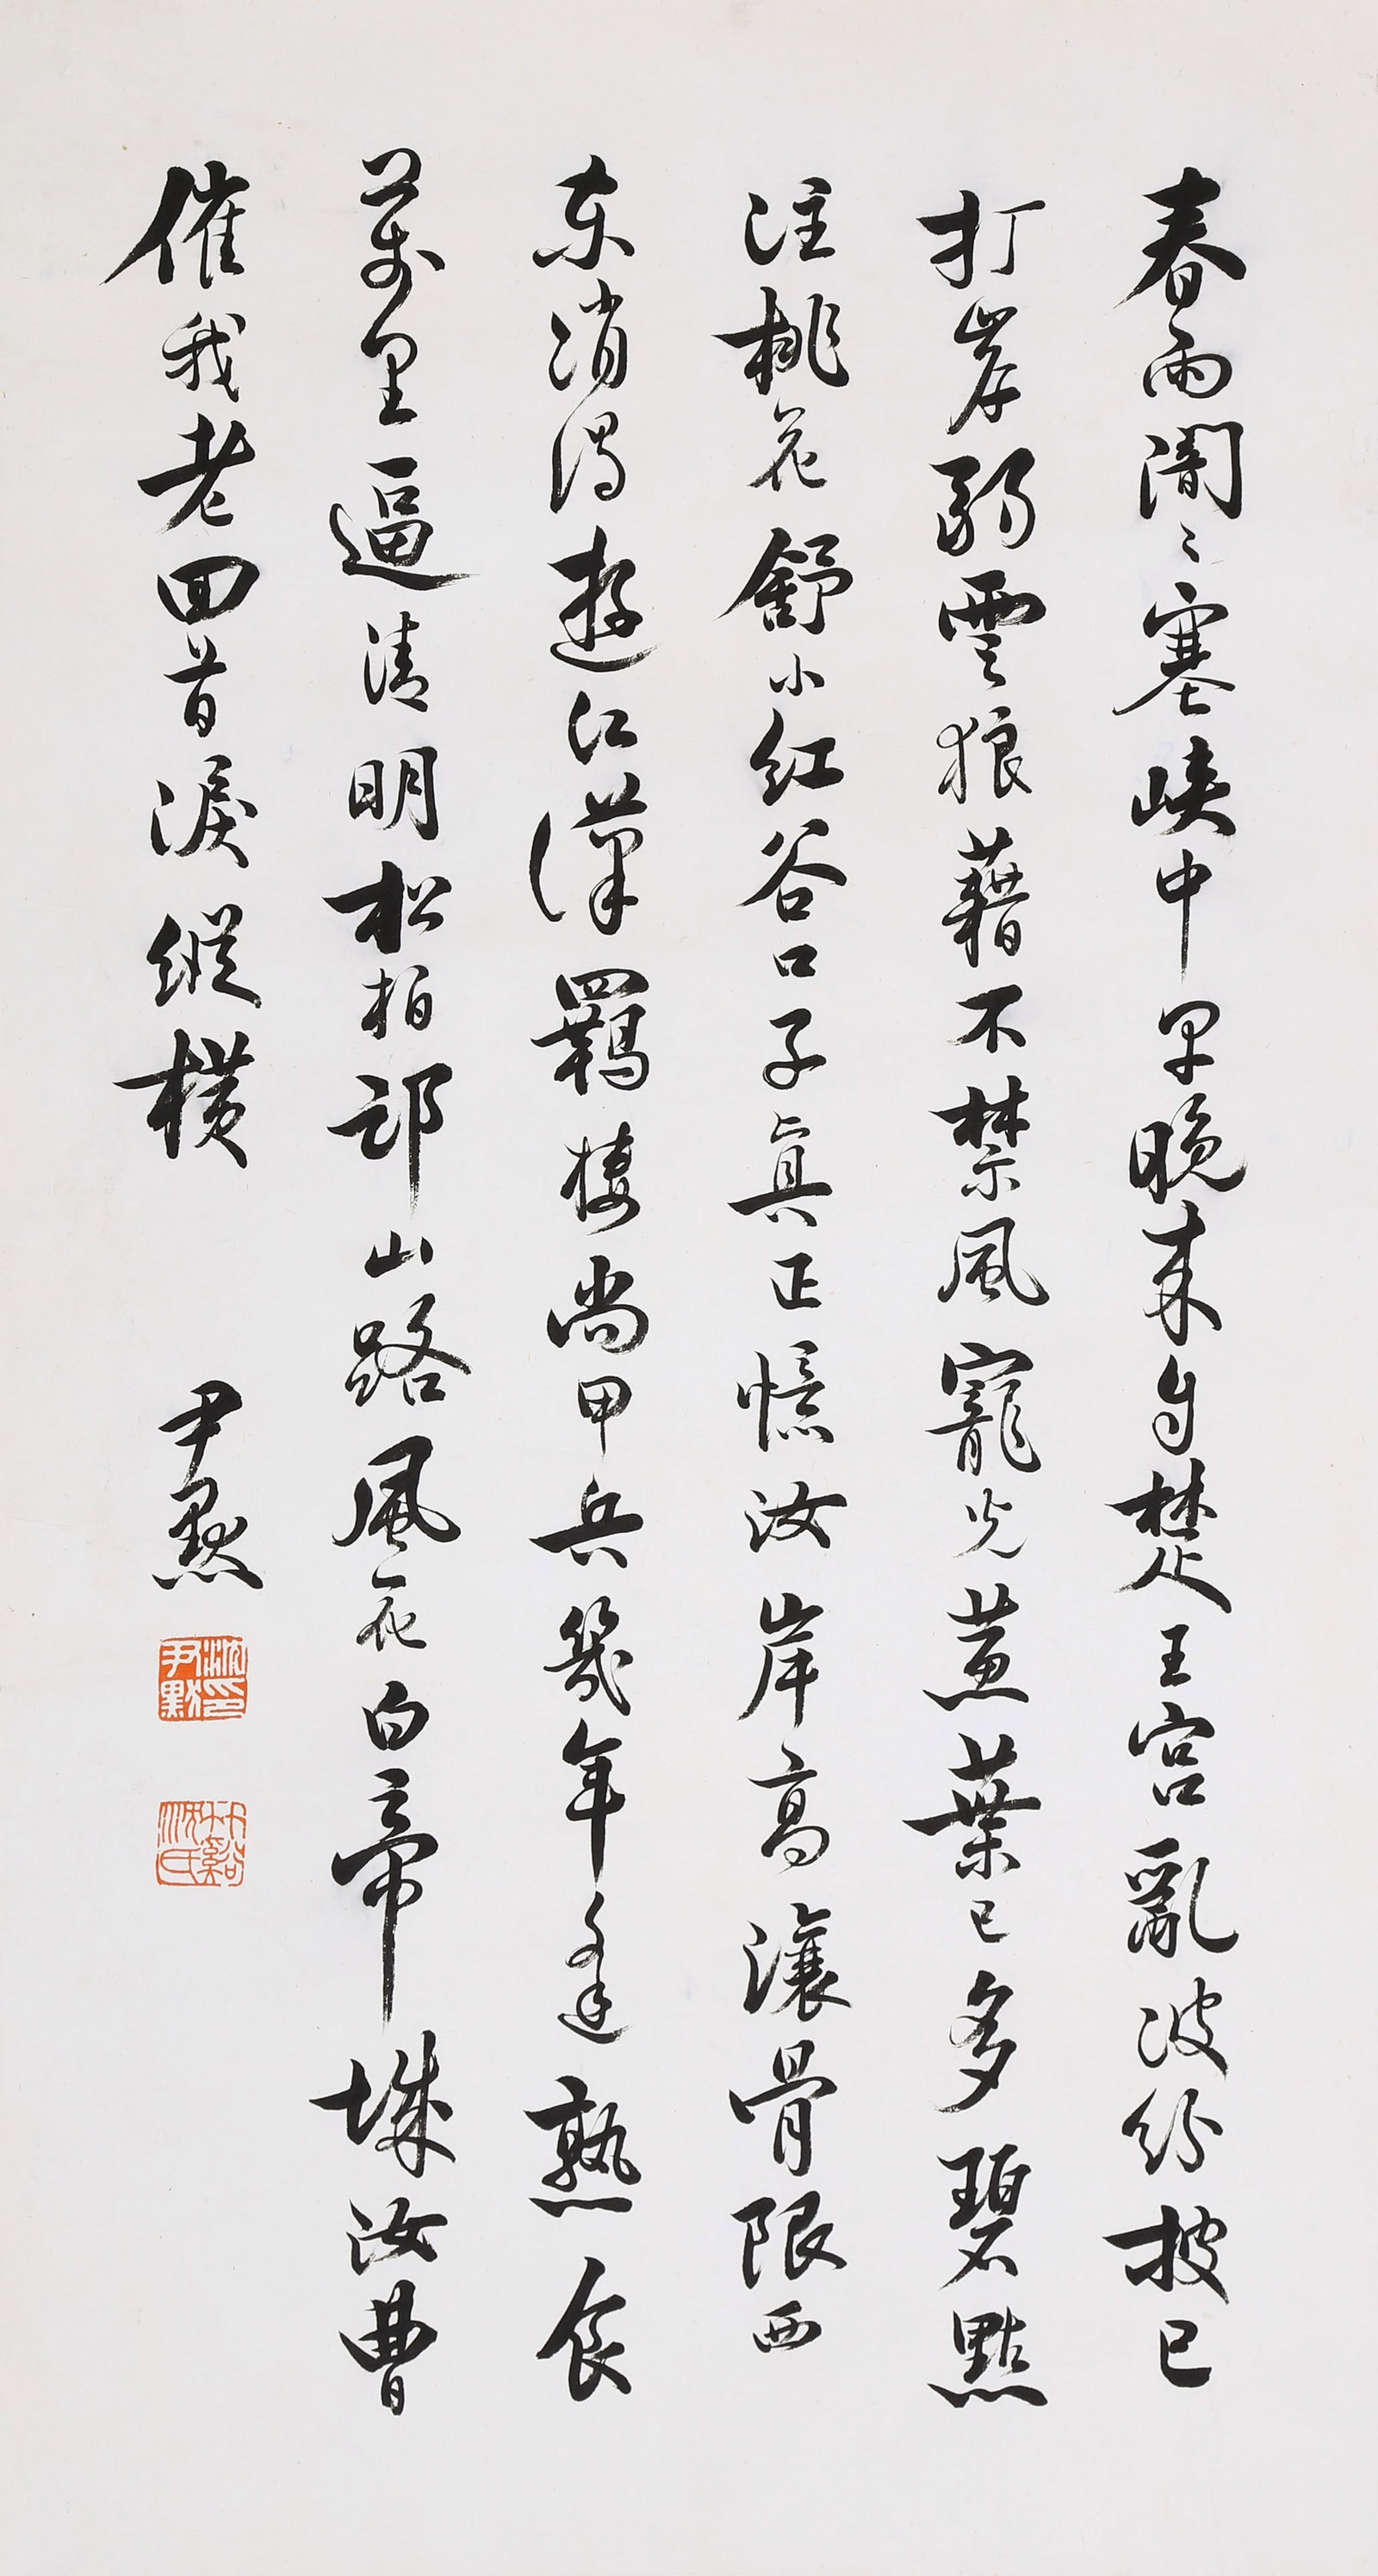 春雨闇〻塞峽中早晚来自楚王宮亂波紛披已
打岸弱雲狼藉不禁風寵光蕙葉已多碧點
注桃花舒小紅谷口子真正憶汝岸高瀼骨限西
東消渴遊江漢羈棲尚甲兵幾年逢熟食
萬里逼清明松柏邙山路風花白帝城汝曹
催我老回首淚縱橫
尹默
沈尹默印
竹谿沈氏